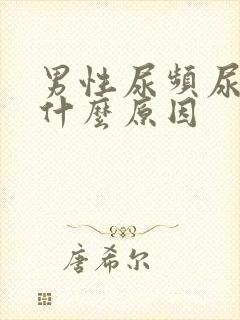 男性尿頻尿
什麼原因
唐希尔